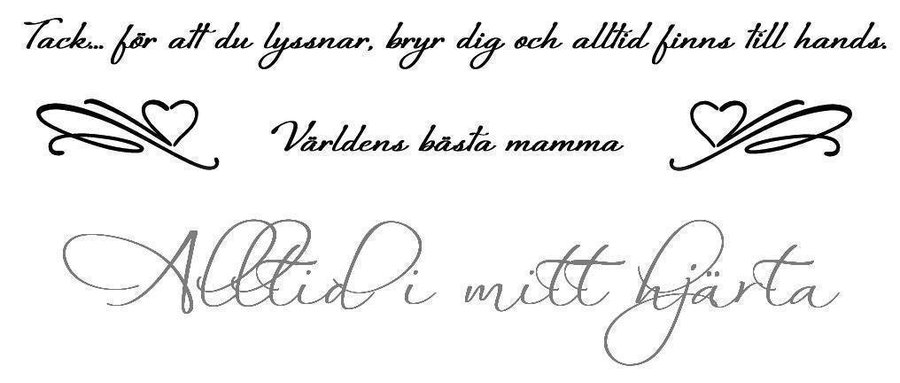 Tack... för att du lyssnar, bryr dig och alltid finns till hands.
Världens bästa mamma
Alltid i mitt hjärta